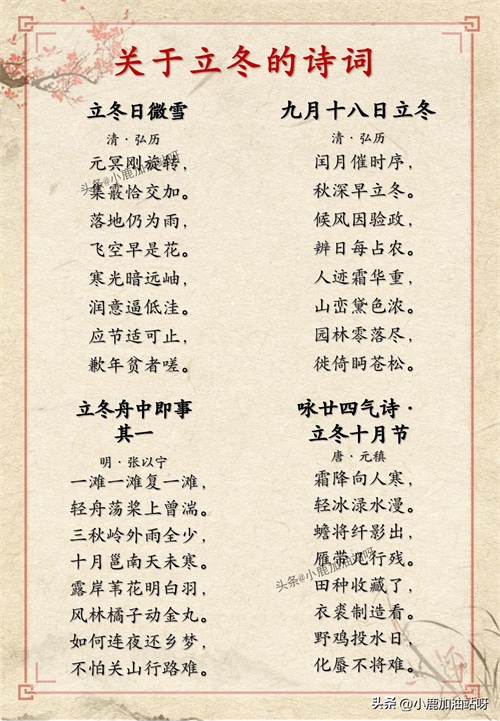 关于立冬的诗词
立冬日微雪
清·弘历
元冥刚旋转，
集霰恰交加。
落地仍为雨，
飞空早是花。
寒光暗远岫，
润意逼低洼。
应节适可止，
歉年贫者嗟。
九月十八日立冬
清·弘历
闰月催时序，
秋深早立冬。
候风因验政，
辨日每占农。
人迹霜华重，
山峦黛色浓。
园林零落尽，
徙倚眄苍松。
立冬舟中即事
其一
明·张以宁
一滩一滩复一滩，
轻舟荡桨上曾湍。
三秋岭外雨全少，
十月邕南天未寒。
露岸苇花明白羽，
风林橘子动金丸。
如何连夜还乡梦，
不怕关山行路难。
咏廿四气诗·
立冬十月节
唐·元稹
霜降向人寒，
轻冰渌水漫。
蟾将纤影出，
雁带几行残。
田种收藏了，
衣裘制造看。
野鸡投水日，
化蜃不将难。
头条@小鹿加油站呀
头条@小鹿加油站呀
头条 @小鹿加油站呀